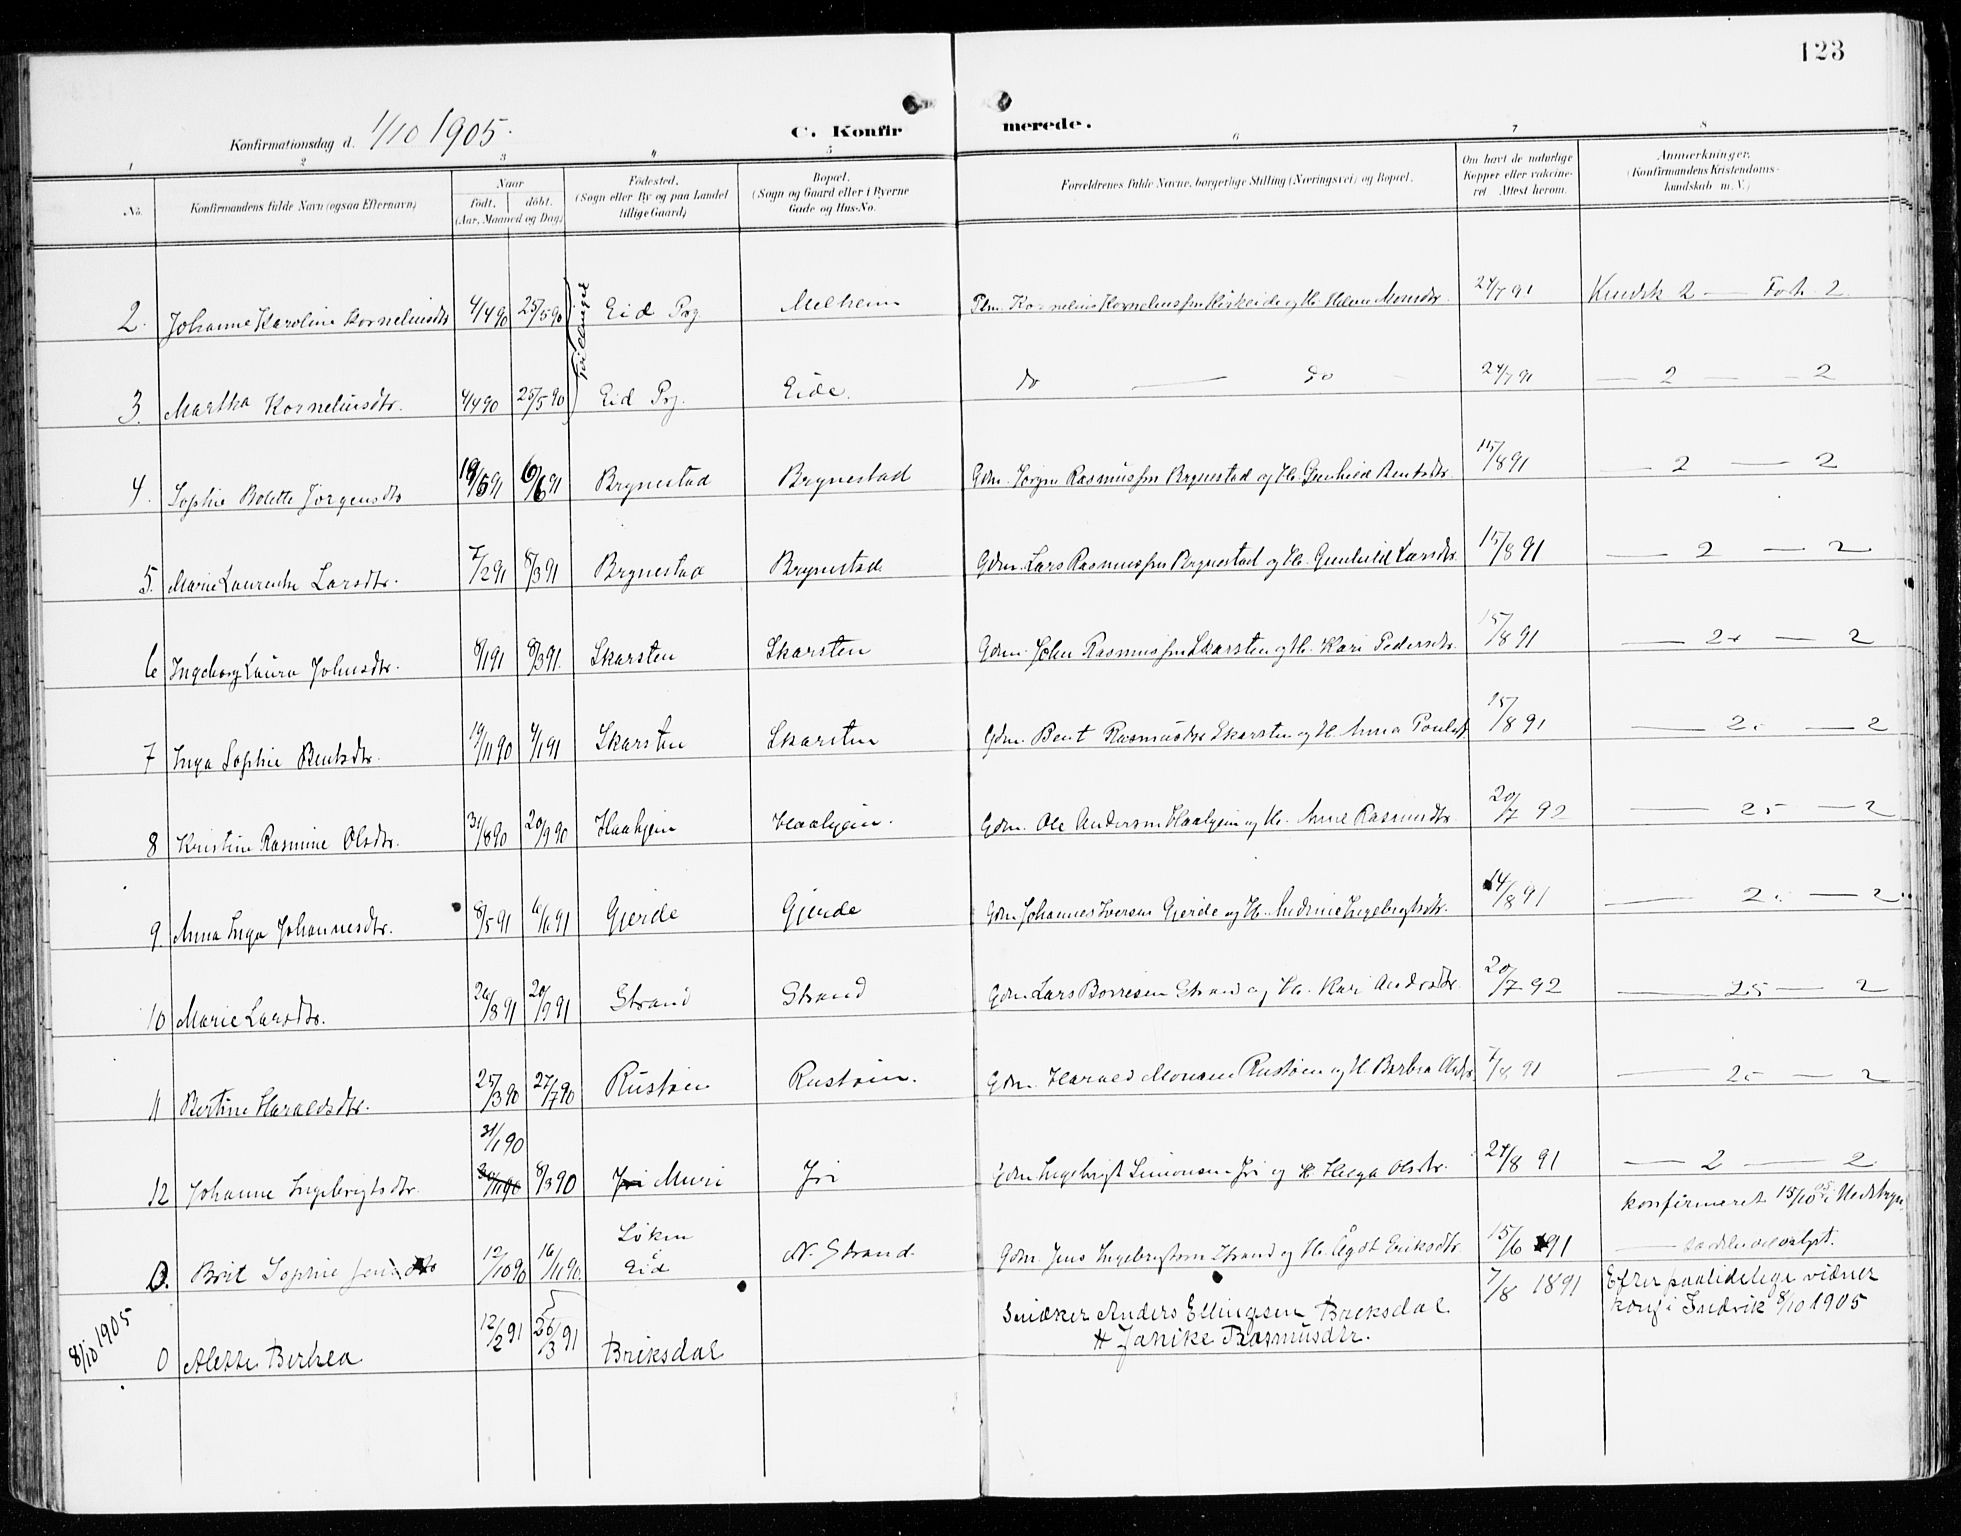 123
Konfirmationsdag d. 1/10 1905. C. Konfirmerede.
1 2 3 4 5 6 7 8
No. Konfirmandens fulde Navn (ogsaa Efternavn) Naar født. døbt. (Aar, Maaned og Dag) Fødested. (Sogn eller By og paa Landet tillige Gaard) Bopæl. (Sogn og Gaard eller i Byerne Gade og Hus-No. Forældrenes fulde Navne, borgerlige Stilling (Næringsvei) og Bopæl. Om havt de naturlige Kopper eller vakcineret Attest herom. Anmærkninger. (Konfirmandens Kristendomskundskab m. V.)
2. Johanne Karoline Kornelius dtr 4/4 90 25/5 90 Tvillinger Eid Prg Melheim Plm. Kornelius Korneliussen og H. Helene Monsdtr. 24/7 91 Kundsk 2 — Forh. 2
3. Martha Korneliusdtr. 4/4 90 25/5 90 Eid Prg. Eide. do — do 24/7 91 — 2 — 2
4. Sophie Bolette Jørgensdtr 19/5 91 6/6 91 Brynestad Brynestad Gdm. Jørgen Rasmussen Brynestad og H. Gunhild Bentsdtr. 15/8 91 — 2 — 2
5. Marie Laurentse Larsdtr. 7/2 91 8/3 91 Brynestad Brynestad Gdm. Lars Rasmussen Brynestad og H. Gunhild Larsdtr. 15/8 91 — 2 — 2
6 Ingeborg Laura Johnsdtr. 8/1 91 8/3 91. Skarsten Skarsten Gdm. John Rasmussen Skarsten og H. Kari Pedersdtr. 15/8 91 — 2 — 2
7 Inga Sophie Bentsdtr. 19/11 90 4/1 91 Skarsten Skarsten Gdm. Bent Rasmussen Skarsten og H. Anna Poulsd 15/8 91 — 2. — 2
8 Kristine Rasmine Olsdtr. 31/8 90 20/9 90 Haahjem Haahjem. Gdm. Ole Andersen Haahjem og H. Anne Rasmusdtr. 20/7 92 — 2 — 2
9 Anna Inga Johannesdtr. 8/5 91 91 Gjerde Gjerde Gdm. Johannes Iversen Gjerde og H. Ingebrigtsdtr. 14/8 91 — 2. — 2
10 Marie Larsdtr. 26/8 91 20/9 91 Strand Strand Gdm. Lars Børresen Strand og H. Kari Andersdtr. 20/7 92 — 2 — 2
11 Bertine Haraldsdtr. 25/3 90 27/7 90 Rustøen Rustøen. Gdm. Harald Monsen Rustøen og H. Barbra Olsdtr. 7/8 91 — 2 — 2
31/1 90
12 Johanne Ingebrigtsdtr. 8/3 90 Jri Muri Jri Gdm. Ingebrigt Simonsen Jri og H. Helga Olsdtr. 24/8 91 — 2 — 2
konfirmeret 15/10 05 i Nedstryn.
Løken
0. Brit Sophie Jensdtr 12/10 90 16/11 90. Eid N. Strand. Gdm. Jens Ingebrigtsen Strand og H. Ågot Eriksdtr. 15/6 91
8/10 1905 0 Alette Berhea 12/2 91 26/3 91 Briksdal Snidker Anders Ellingsen Briksdal H Janike Rasmusdtr. 7/8 1891 Efter paalidelige vidner konf i Indvik 8/10 1905